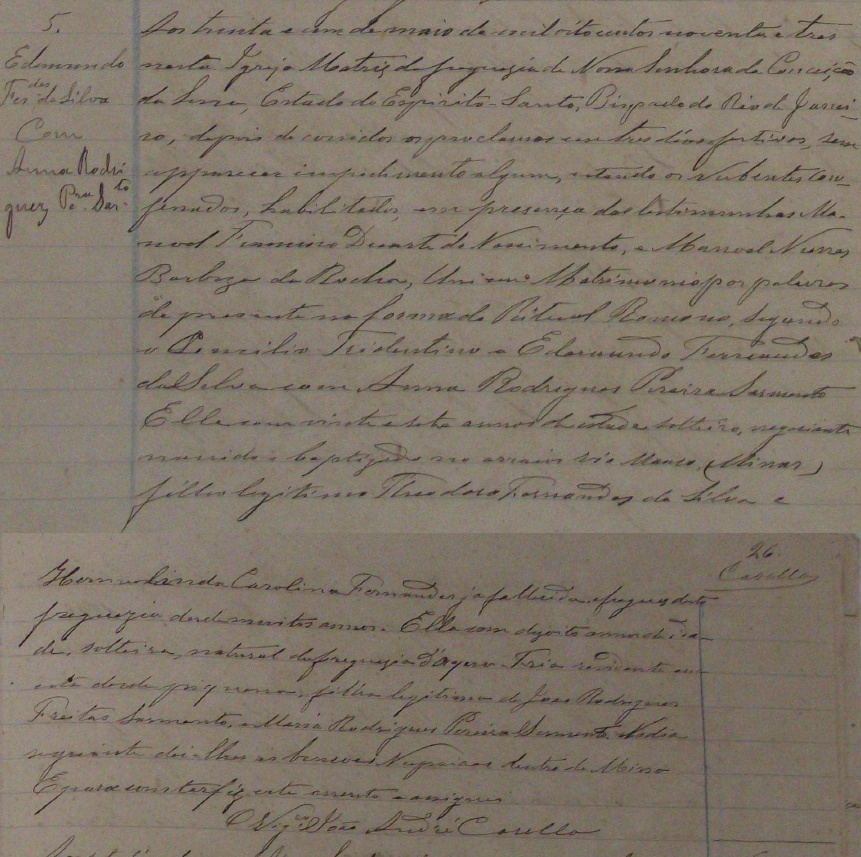 5.
Edmundo
Fes des da Silva
Com
Anna Rodri
guez Pra Sarto
Aos trinta e um de maio de mil oitocentos noventa e tres
nesta Igreja Matriz da freguezia de Nossa Senhora da Conceição
da Serra, Estado do Espirito-Santo, Bispado do Rio de Janei-
ro, depois de corridos os proclamas em tres dias festivos, sem
apparecer impedimento algum, estando os Nubentes con-
fessados, habilitados, em presença das testimunhas Ma-
noel Francisco Duarte do Nascimento, e Manoel Nunes
Barboza da Rocha, Uni em Matrimonio por palavras
de presente na forma do Ritual Romano, segundo
o Concilio Tridentino a Edmundo Fernandes
da Silva com Anna Rodrigues Pereira Sarmento
Elle com vinte e sete annos de idade solteiro, negociante
nascido e baptizado no arraial rio Manso, (Minas)
filho legitimo Theodoro Fernandes da Silva e
26.
Casella
Carolina Fernandes ja fallecida e freguez desta
freguezia desde muitos annos. Ella com dezoito annos de ida-
de, solteira, natural da freguezia d'Agua-Fria residente em
esta desde piquena, filha legitima de Joao Rodrigues
Freitas Sarmento, e Maria Rodrigues Pereira Sarmento. No dia
seguinte dei-lhes as bençoes Nupciaes dentro da Missa
E para constar fiz este assento e assignei
O Vigro João André Casella